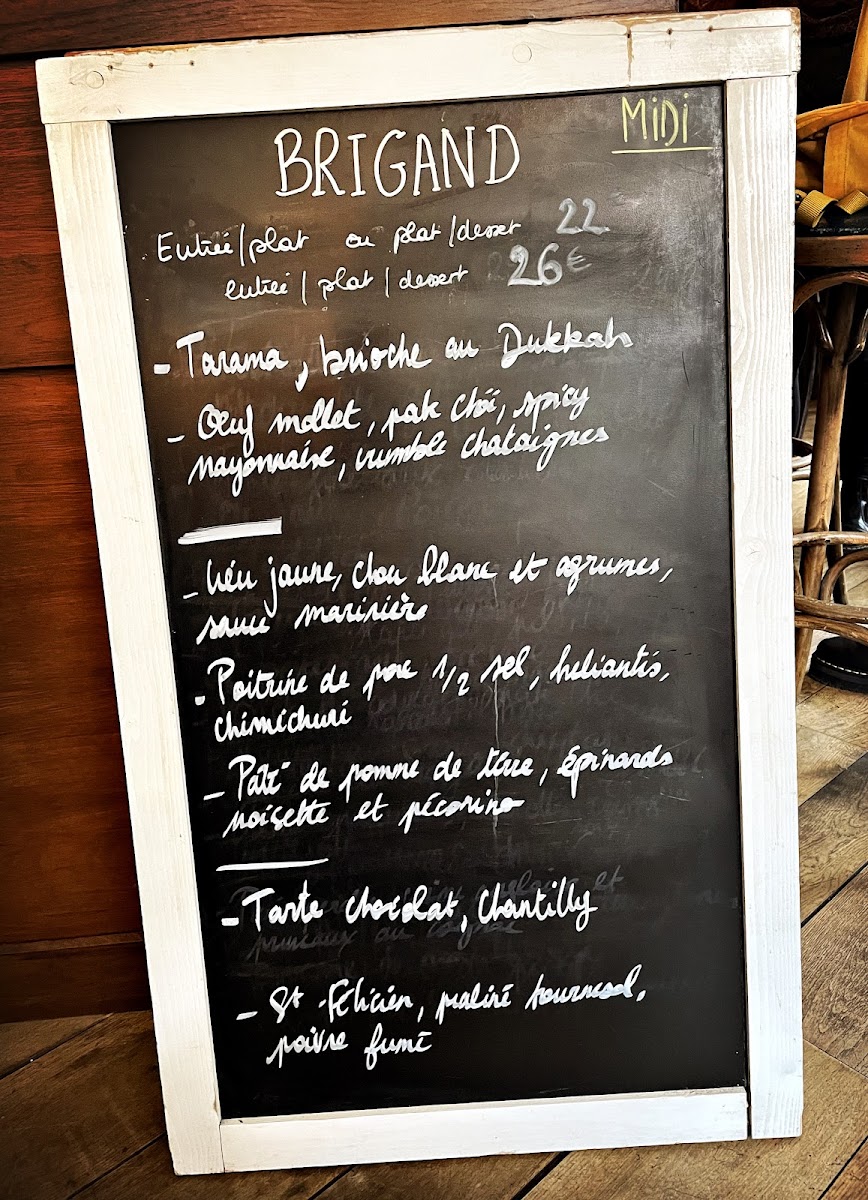 MiDi
BRIGAND
Entrée/plat ou plat/dessert 22
entrée / plat / dessert 26€
- Tarama, brioche au Dukkah
- Œuf mollet, pak choï, spicy
mayonnaise, crumble chataignes
- Lieu jaune, chou blanc et agrumes,
sauce marinière
- Poitrine de porc 1/2 sel, heliantis,
chimichuri
- Paté de pomme de terre, épinards
noisette et pécorino
- Tarte chocolat, Chantilly
- St-Félicien, praliné tournesol,
poivre fumé